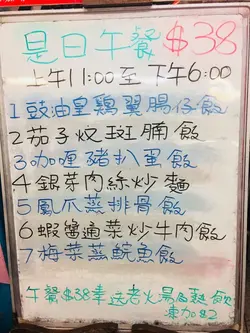 是日午餐 $38
上午11:00 至 下午6:00
1 豉油皇鷄翼腸仔飯
2 茄子炆斑腩飯
3 咖喱豬扒蛋飯
4 銀芽肉絲炒麵
5 鳳爪蒸排骨飯
6 蝦醬通菜炒牛肉飯
7 梅菜蒸鯇魚飯
午餐$38奉送老火湯或熱飲
凍加$2